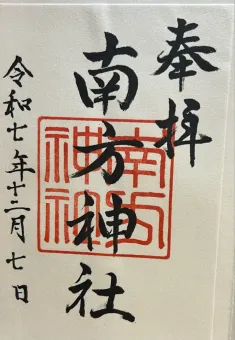 奉拝
南方神社
令和七年十二月七日
南方
神社